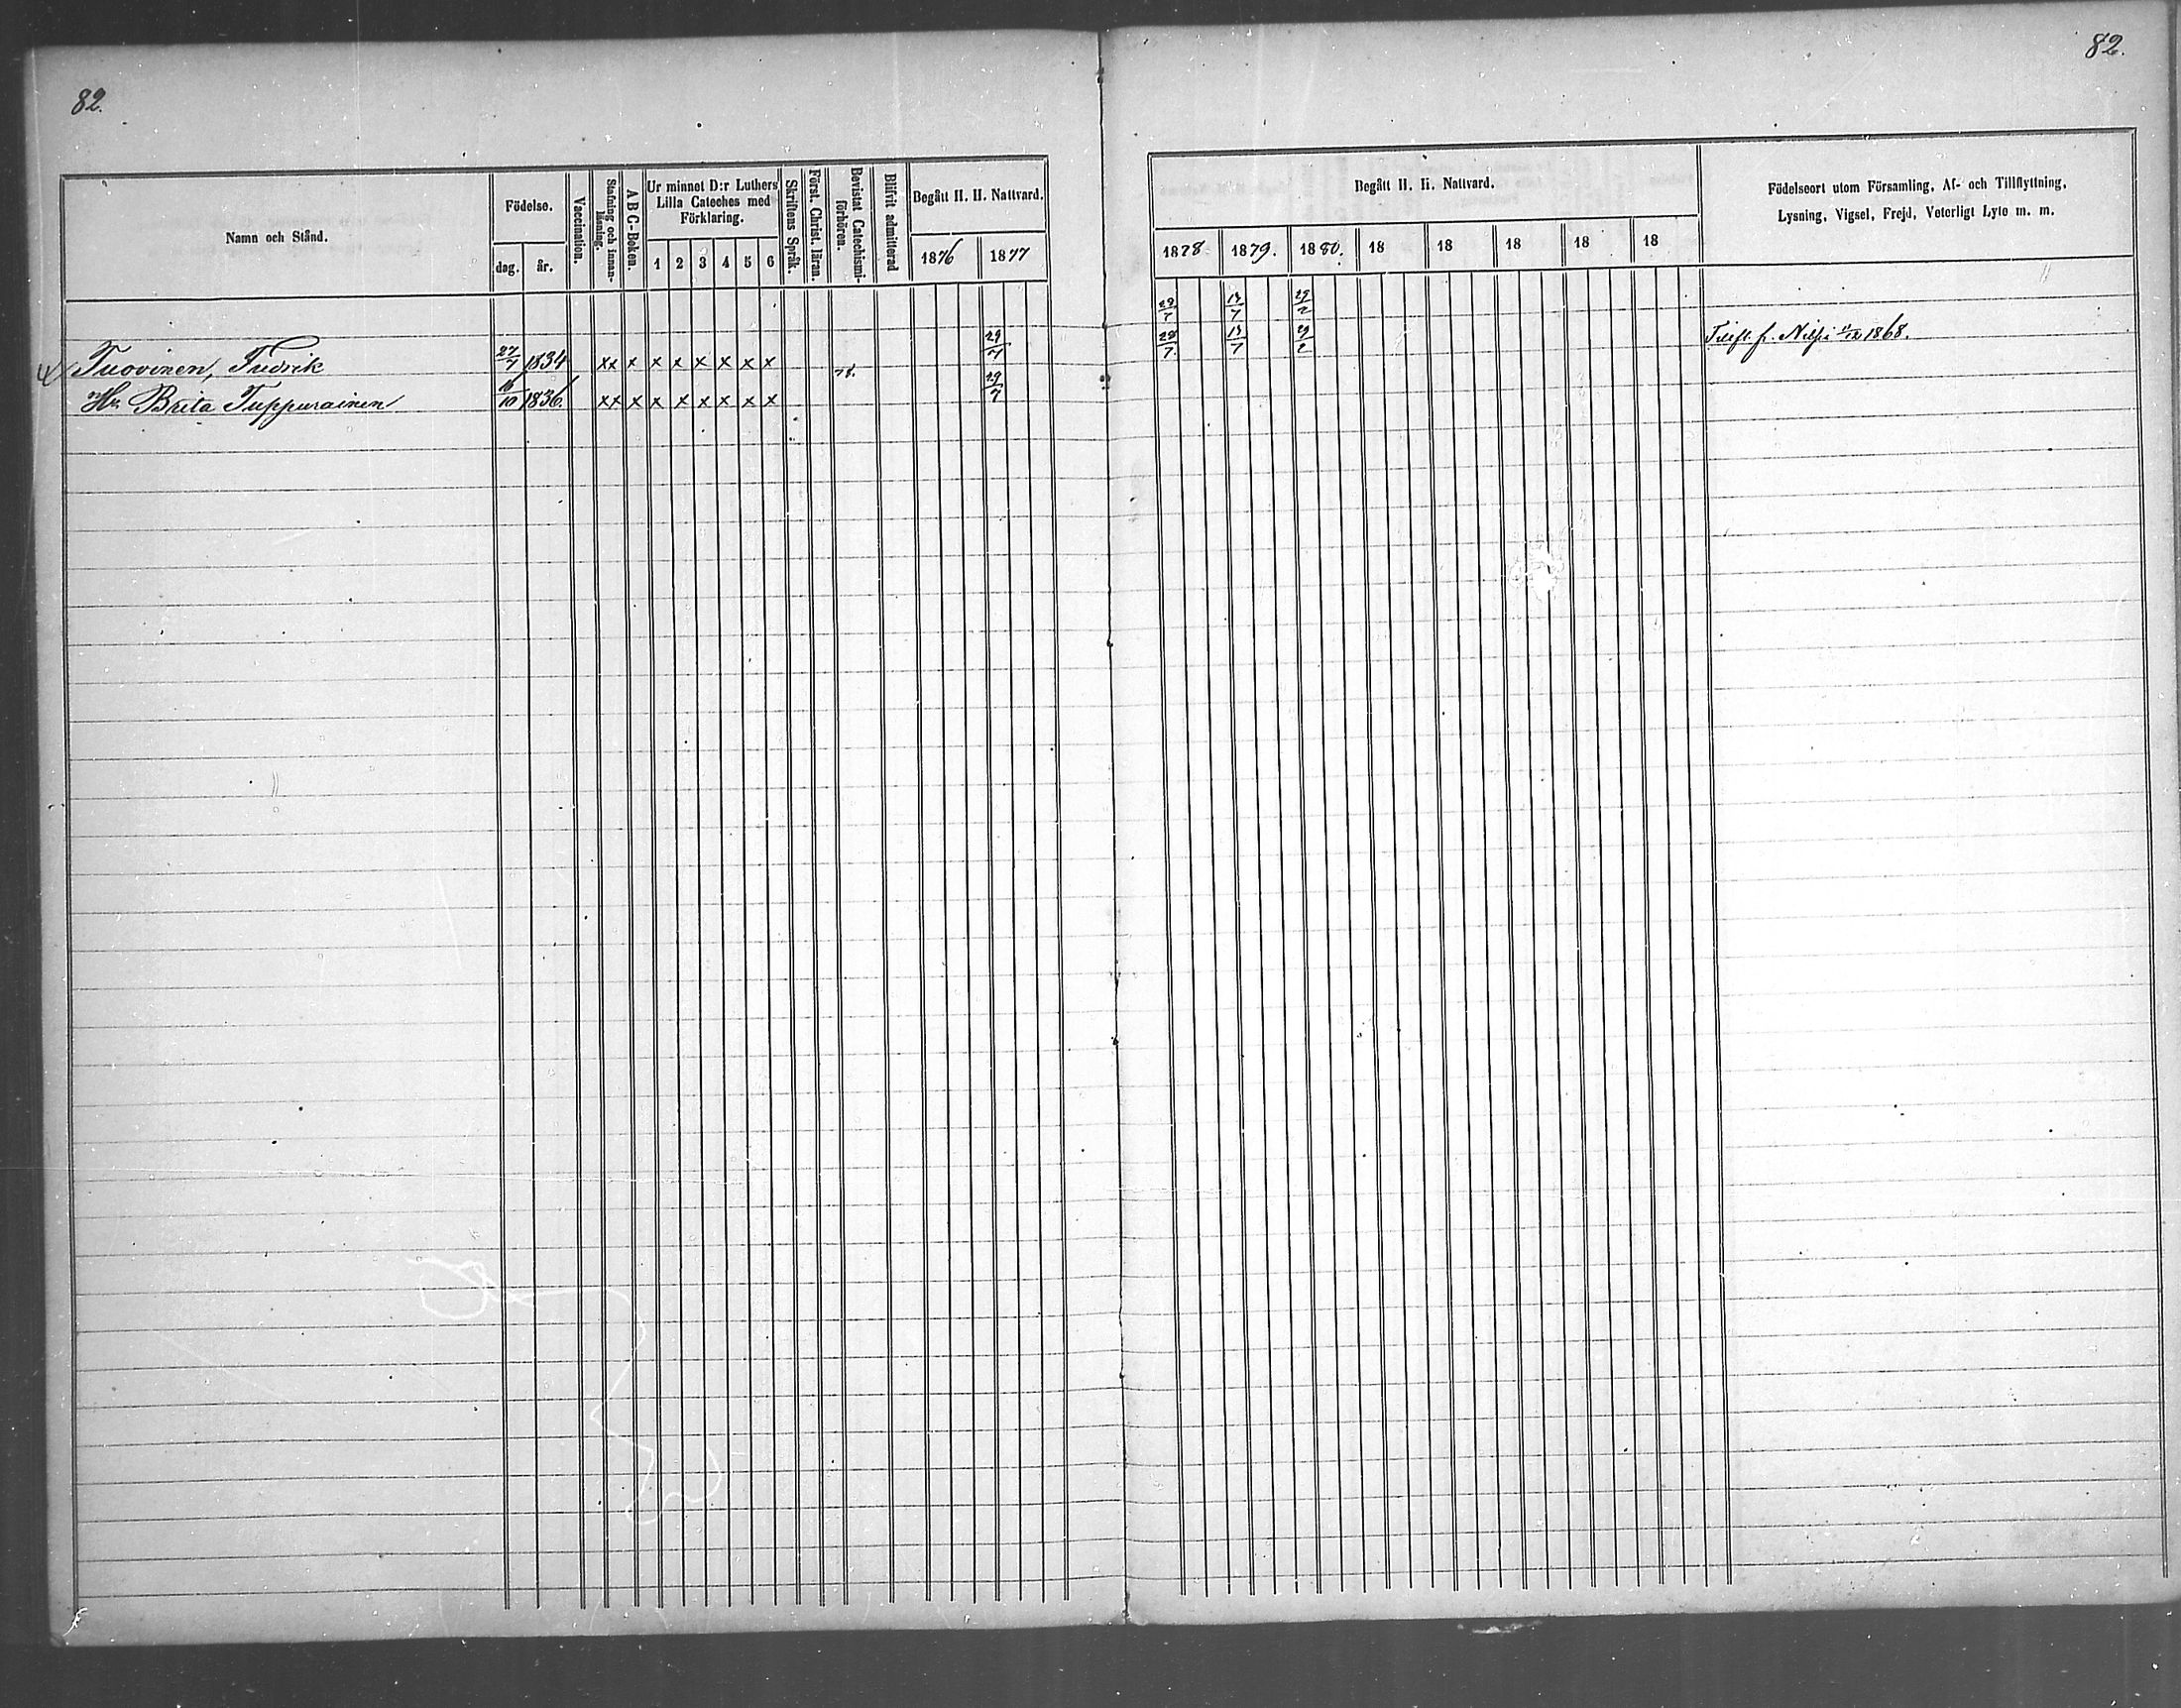 82.
82.
Namn och Stånd.
Födelse.
dag.
år.
Vaccination.
Stafning och innan-
läsning.
A B C-Boken.
Ur minnet D:r Luthers
Lilla Cateches med
Förklaring.
1 2 3 4 5 6
Skriftens Språk.
Först. Christ. läran.
Bevistat Catechismi-
förhören.
Blifvit admitterad
Begått H. H. Nattvard.
1876 1877
Begått H. H. Nattvard.
1878 1879. 1880. 18 18 18 18 18
Födelseort utom Församling, Af- och Tillflyttning,
Lysning, Vigsel, Frejd, Veterligt Lyte m. m.
Tuovinen, Fredrik 27/7 1834 xx x x x x x x x 78. 29/7
Hu. Brita Tuppurainen 16/10 1836 xx x x x x x x x 29/7
29/7 13/7 29/2
28/7 13/7 29/2 Tillfl. fr. Nilsiä 1868.